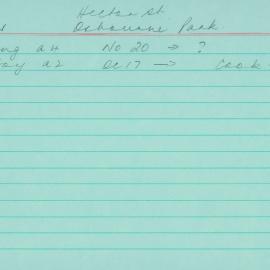 Hector St
Osbourne Park
a4 No 20 → ?
a2 Dec 17 → Cook